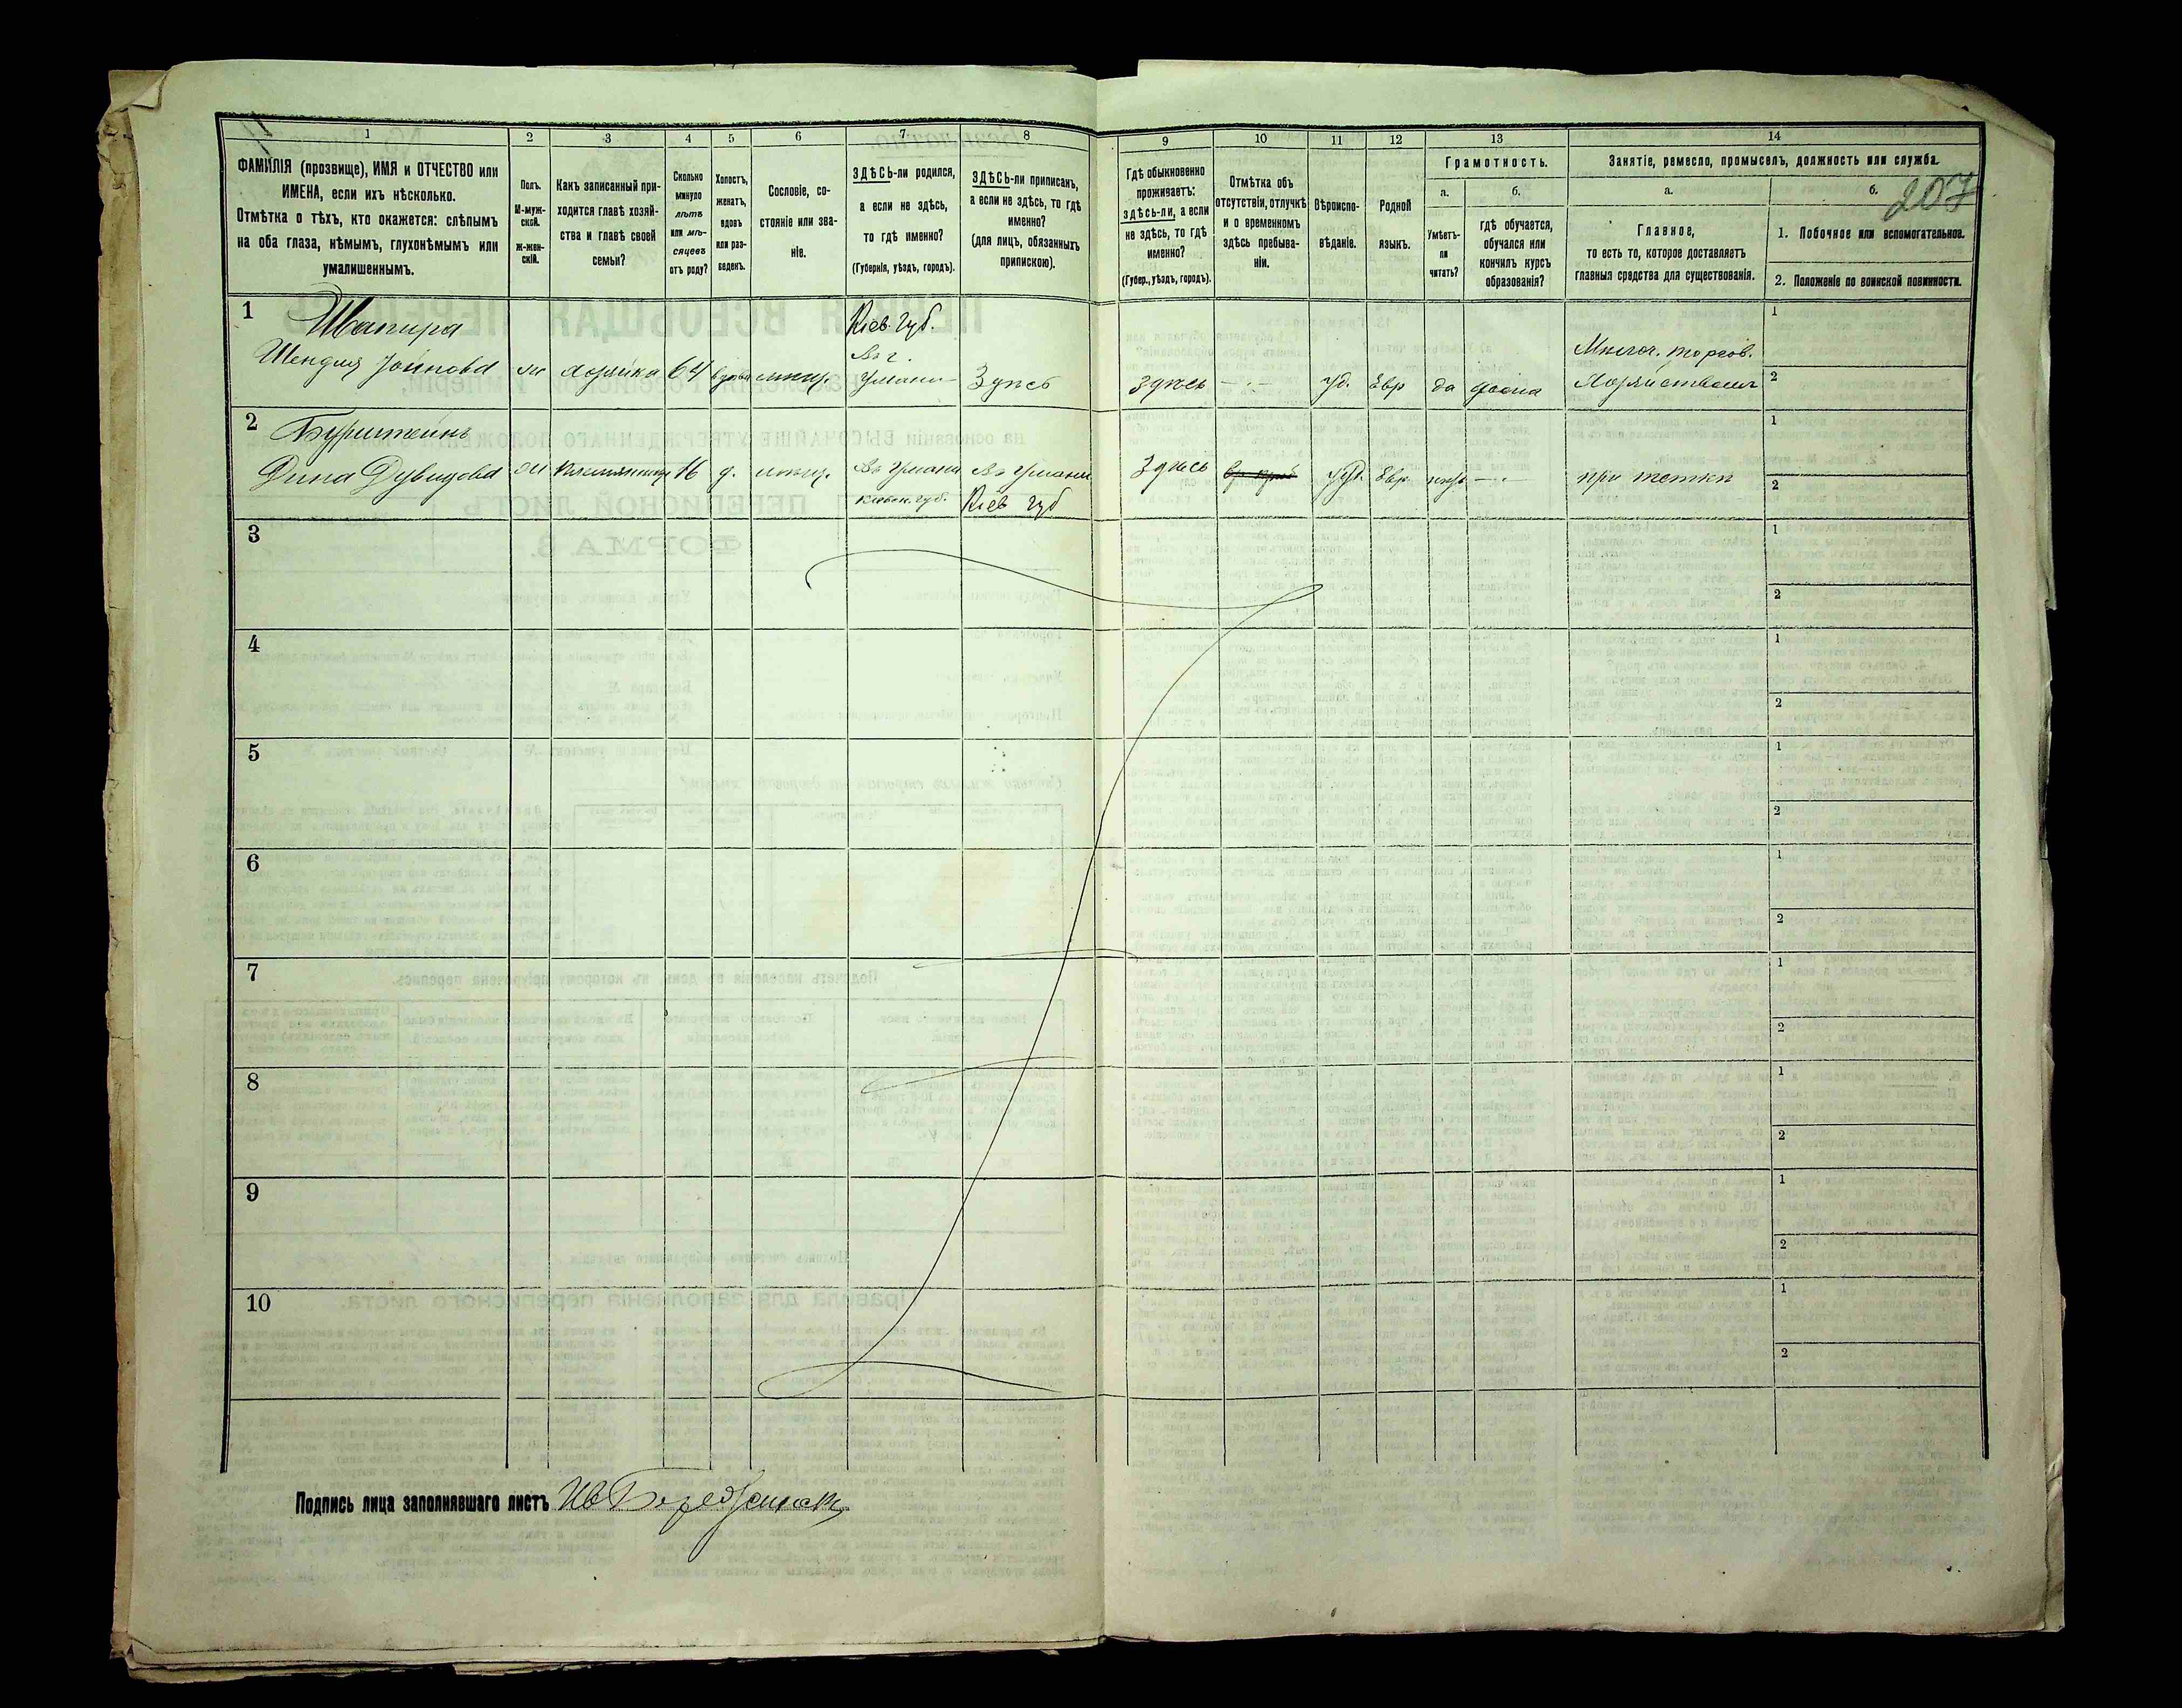 1 2 3 4 5 6 7 8 9 10 11 12 13 14
ФАМИЛІЯ (прозвище), ИМЯ и ОТЧЕСТВО или
ИМЕНА, если ихъ нѣсколько.
Отмѣтка о тѣхъ, кто окажется: слѣпымъ
на оба глаза, нѣмымъ, глухонѣмымъ или
умалишеннымъ.
Полъ.
М-муж-
ской.
ж-жен-
скій.
Какъ записанный при-
ходится главѣ хозяй-
ства и главѣ своей
семьи?
Сколько
минуло
лѣтъ
или мѣ-
сяцевъ
отъ роду?
Холостъ,
женатъ,
вдовъ
или раз-
веденъ.
Сословіе, со-
стояніе или зва-
ніе.
ЗДѢСЬ-ли родился,
а если не здѣсь,
то гдѣ именно?
(Губернія, уѣздъ, городъ).
ЗДѢСЬ-ли приписанъ,
а если не здѣсь, то гдѣ
именно?
(для лицъ, обязанныхъ
припискою).
Гдѣ обыкновенно
проживаетъ:
здѣсь-ли, а если
не здѣсь, то гдѣ
именно?
(Губер., уѣздъ, городъ).
Отмѣтка объ
отсутствіи, отлучкѣ
и о временномъ
здѣсь пребыва-
ніи.
Вѣроиспо-
вѣданіе.
Родной
языкъ.
Грамотность.
а.
Умѣетъ-
ли
читать?
б.
гдѣ обучается,
обучался или
кончилъ курсъ
образованія?
Занятіе, ремесло, промыселъ, должность или служба.
а.
Главное,
то есть то, которое доставляетъ
главныя средства для существованія.
б.
207
1. Побочное или вспомогательное.
2. Положеніе по воинской повинности.
1
Шапира
Шендля
ж
хозяйка
64
вдова
мѣщ.
Кіев. губ.
въ г.
Умани
Здѣсь
здѣсь
Іуд.
Евр
да
дома
Мелоч. торгов.
1
2
2
Бурштейнъ
Дина Дувидова
ж
племянница
16
д.
мѣщ.
въ Умани
Кіевск. губ.
въ Умани
Кіев губ
Здѣсь
Іуд.
Евр
нѣтъ
при тетки
1
2
3
1
2
4
1
2
5
1
2
6
1
2
7
1
2
8
1
2
9
1
2
10
1
2
Подпись лица заполнявшаго листъ